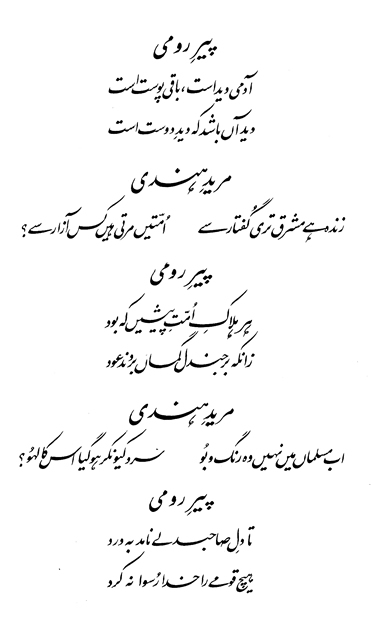 پیرِ رومی
آدمی دید است، باقی پوست است
دید آں باشد کہ دیدِ دوست است
مریدِ ہندی
زندہ ہے مشرق تری گفتار سے اُمّتیں مرتی ہیں کس آزار سے؟
پیرِ رومی
ہر ہلاکِ اُمّتِ پیشیں کہ بود
زانکہ بر جندل گماں بردند عود
مریدِ ہندی
اب مسلماں میں نہیں وہ رنگ و بُو سرد کیونکر ہو گیا اس کا لہُو؟
پیرِ رومی
تا دلِ صاحبدلے نامد بہ درد
ہیچ قومے را خدا رُسوا نہ کرد